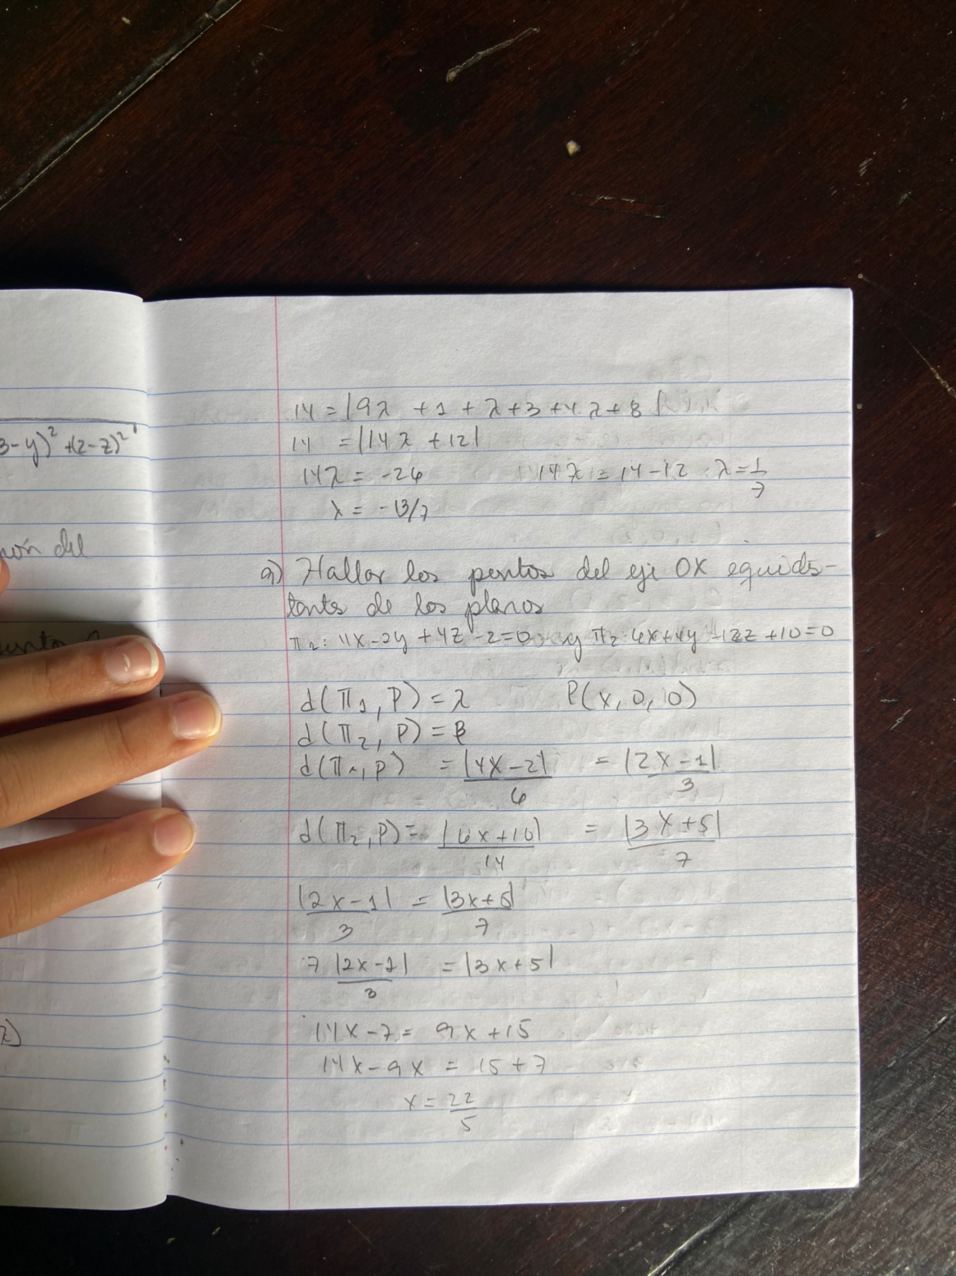 3-y)² +(z-z)²
ión del
14 = |9λ + 1 + λ+3 +4λ+8|
14 = |14λ +12|
14λ = -26    14λ = 14-12  λ=1/7
λ = -13/7
9) Hallar los puntos del eje OX equidis-
tantes de los planos
π₂: 4x-2y +4z -2=0 y π₂: 6x+4y -12z +10=0
d(π₁, P) = λ    P(x, 0, 0)
d(π₂, P) = β
d(π₁, P) = |4x-2|/6 = |2x-1|/3
d(π₂, P) = |6x+10|/14 = |3x+5|/7
|2x-1|/3 = |3x+5|/7
7 |2x-1|/3 = |3x+5|
14x-7 = 9x+15
14x-9x = 15+7
x = 22/5